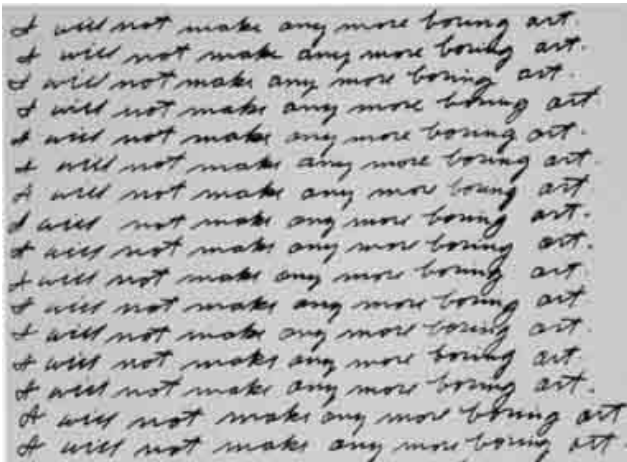 I will not make any more boring art.
I will not make any more boring art.
I will not make any more boring art.
I will not make any more boring art
I will not make any more boring art.
I will not make any more boring art.
I will not make any more boring art.
I will not make any more boring art.
I will not make any more boring art.
I will not make any more boring art.
I will not make any more boring art
I will not make any more boring art.
I will not make any more boring art.
I will not make any more boring art.
I will not make any more boring art
I will not make any more boring art.